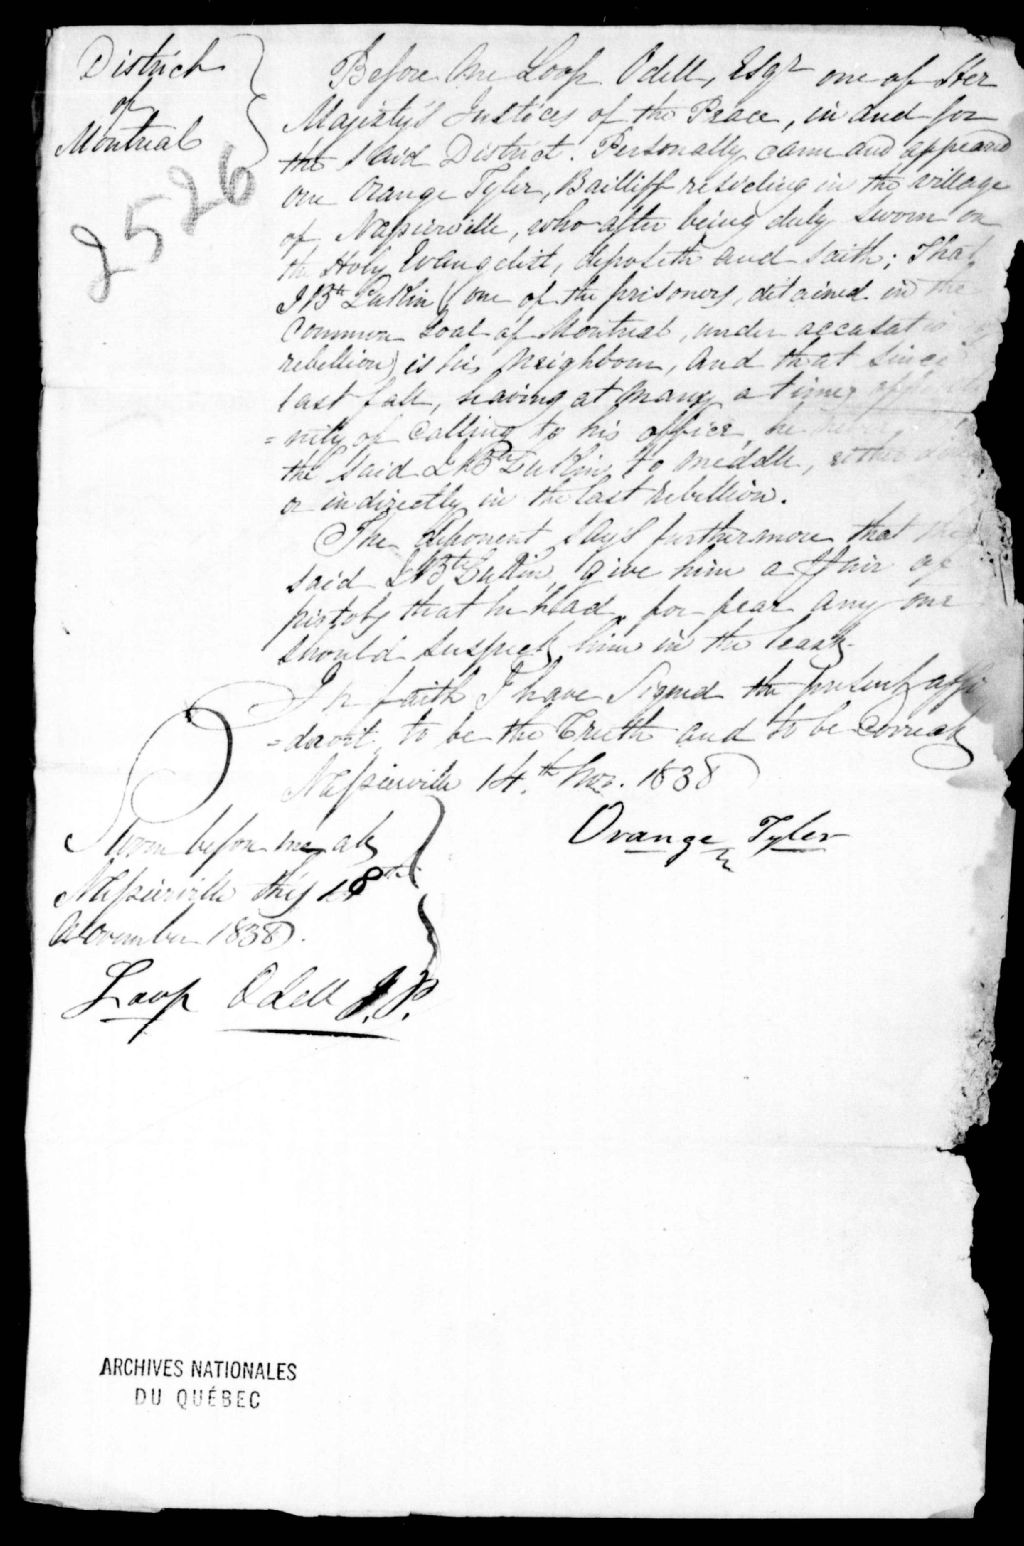 District
of
Montreal
2526
Before Me Loop Odell, Esqr one of Her
Majesty's Justices of the Peace, in and for
the said District. Personally came and appeared
one Orange Tyler, Bailliff residing in the village
of Napierville, who after being duly sworn on
the Holy Evangelist, deposeth and saith; That
J Bte Lukin (one of the prisoners, detained in the
Common Goal of Montreal, under accusation of
rebellion) is his neighbour, and that since
last fall, having at many a times opportu
=nity of calling to his office, he
the said J Bte Lukin to meddle, either
or indirectly in the last rebellion.
The deponent says furthermore that the
said J Bte Lukin, give him a pair of
pistols that he had, for fear any one
should suspect him in the least.
In faith I have signed the present affi
=davit, to be the Truth and to be correct
Napierville 14th Nov. 1838
Orange Tyler
Sworn before me at
Napierville this 18th
November 1838.
Loop Odell J.P.
ARCHIVES NATIONALES
DU QUÉBEC